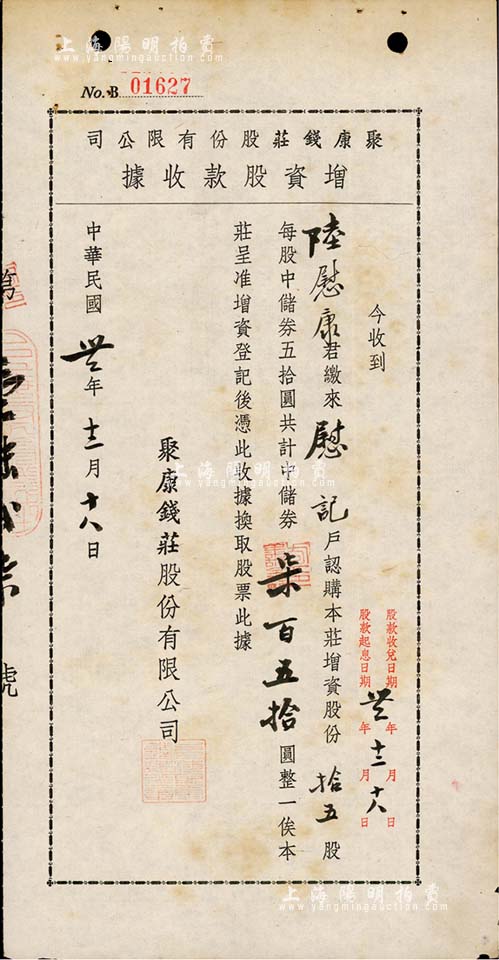 上海陽明拍賣
www.yangmingauction.com
No. B 01627
聚康錢莊股份有限公司
增資股款收據
今收到
陸慰康君繳來慰記戶認購本莊增資股份拾五股
每股中儲券五拾圓共計中儲券柒百五拾圓整一俟本
莊呈准增資登記後憑此收據換取股票此據
聚康錢莊股份有限公司
中華民國卅二年十二月十八日
股款收兌日期卅二年十二月十八日
股款起息日期 年 月 日
號
上海陽明拍賣
www.yangmingauction.com
上海陽明拍賣
www.yangmingauction.com